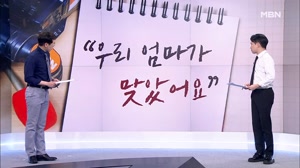 MBN
"우리 엄마가
맞았어요"